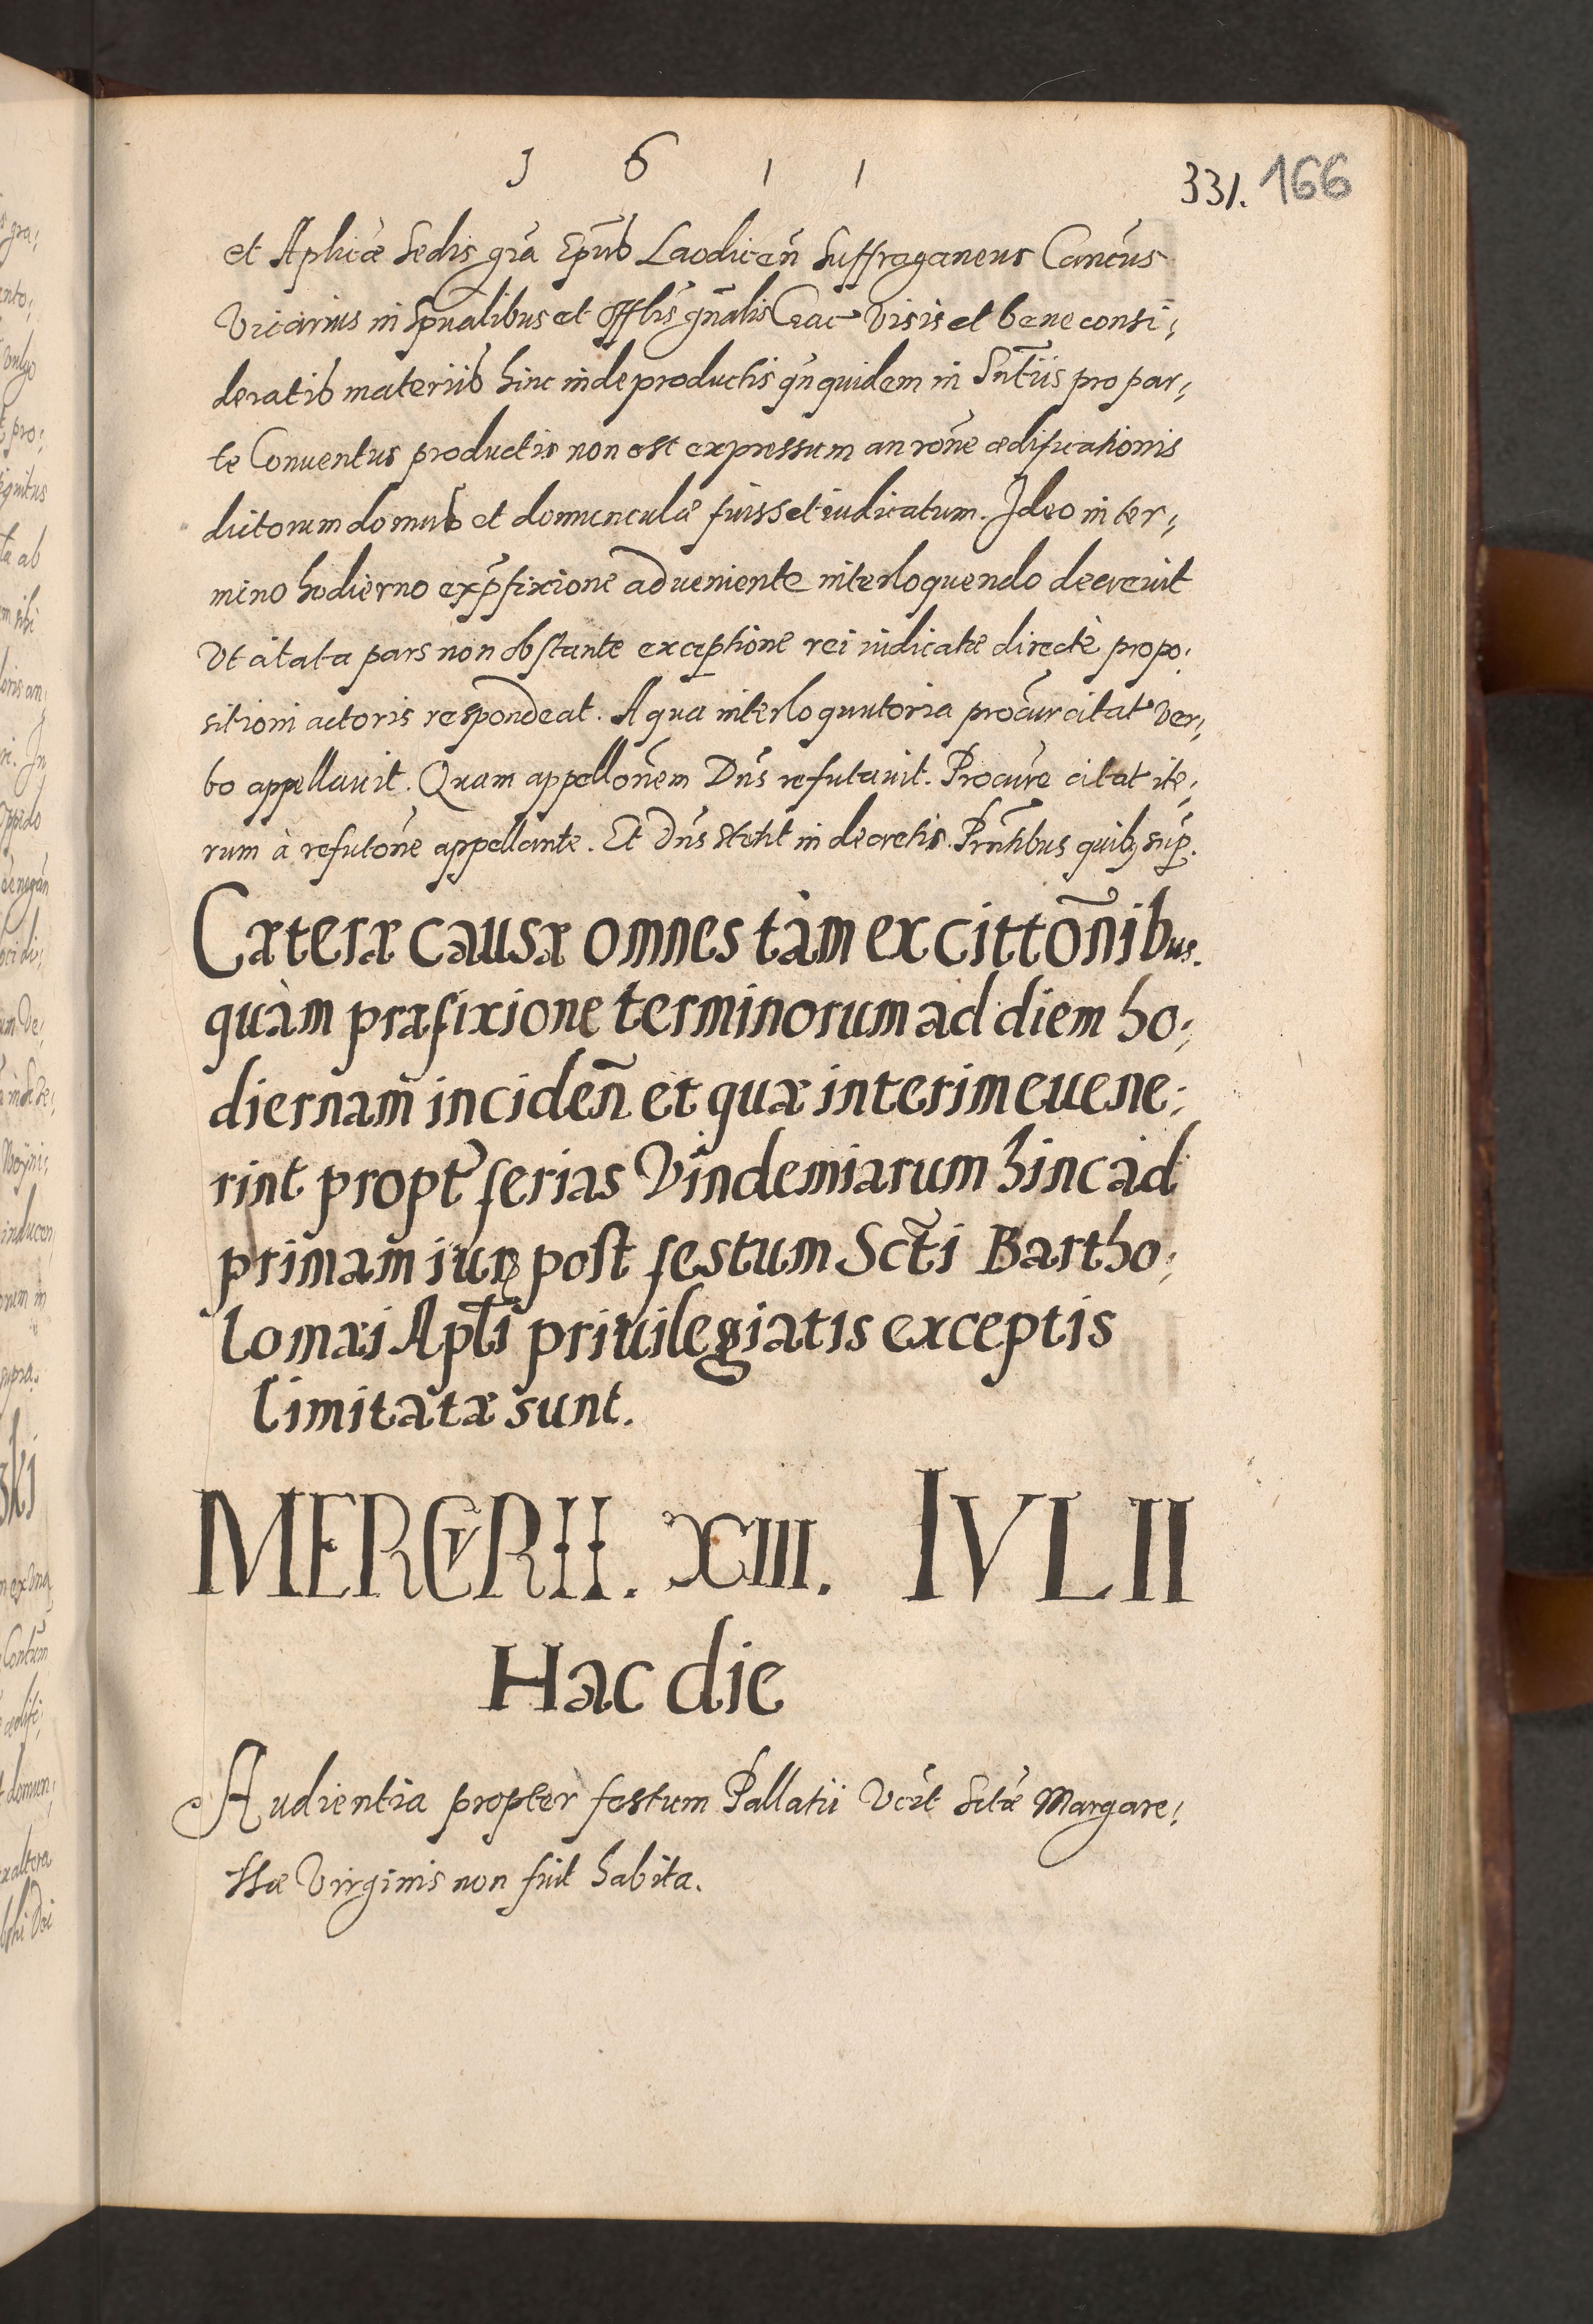 1 6 1 1
331. 166
et Aplicæ Sedis gra Epus Laodicen Suffraganeus Cancus
Vicarius in Spualibus et Offlis gnalis Crac Visis et bene consi;
deratis materiis hinc inde productis qn quidem in Sntiis pro par;
te Conuentus productis non est expressum an rone ædificationis
dictorum domus et domunculæ fuisset iudicatum. Ideo in ter;
mino hodierno ex pfixione adueniente interloquendo decreuit
Vt citata pars non obstante exceptione rei iudicatæ directè propo;
sitioni actoris respondeat. A qua interloquutoria procur citat Ver;
bo appellauit. Quam appellonem Dns refutauit. Procure citat ite;
rum à refutone appellante. Et Dns stetit in decretis. Prntibus quib, sup.
Cæteræ causæ omnes tàm ex cittonibus.
quàm præfixione terminorum ad diem ho;
diernam inciden et quæ interim euene;
rint propt ferias Vindemiarum hinc ad
primam iur post festum Scti Bartho;
lomæi Apli priuilegiatis exceptis
limitatæ sunt.
MERCVRII. XIII. IVLII
Hac die
Audientia propter festum Pallatii Vcit Sctæ Margare;
ttæ Virginis non fuit habita.